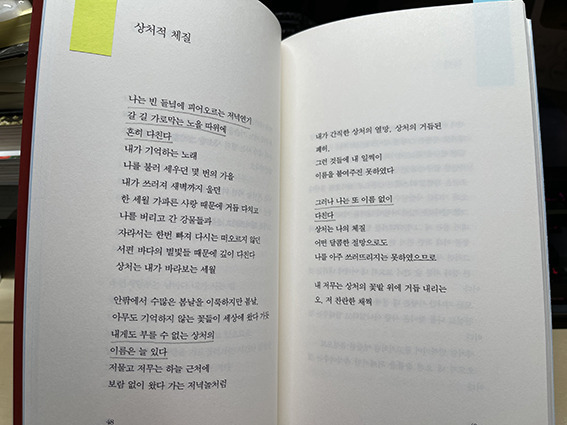 상처적 체질
나는 빈 들녘에 피어오르는 저녁연기
갈 길 가로막는 노을 따위에
흔히 다친다
내가 기억하는 노래
나를 불러 세우던 몇 번의 가을
내가 쓰러져 새벽까지 울던
한 세월 가파른 사랑 때문에 거듭 다치고
나를 버리고 간 강물들과
자라서는 한번 빠져 다시는 떠오르지 않던
서편 바다의 별빛들 때문에 깊이 다친다
상처는 내가 바라보는 세월
안팎에서 수많은 봄날을 이룩하지만 봄날,
아무도 기억하지 않는 꽃들이 세상에 왔다 가듯
내게도 부를 수 없는 상처의
이름은 늘 있다
저물고 저무는 하늘 근처에
보람 없이 왔다 가는 저녁놀처럼
내가 간직한 상처의 열망, 상처의 거듭된
폐허,
그런 것들에 내 일찍이
이름을 붙여주진 못하였다
그러나 나는 또 이름 없이
다친다
상처는 나의 체질
어떤 달콤한 절망으로도
나를 아주 쓰러뜨리지는 못하였으므로
내 저무는 상처의 꽃밭 위에 거듭 내리는
오, 저 찬란한 채찍